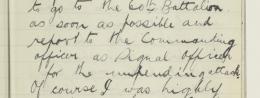 to go to the 60th Battalion
as soon as possible and
report to the Commanding
officer as Signal officer
for the impending attack
Of course I was highly